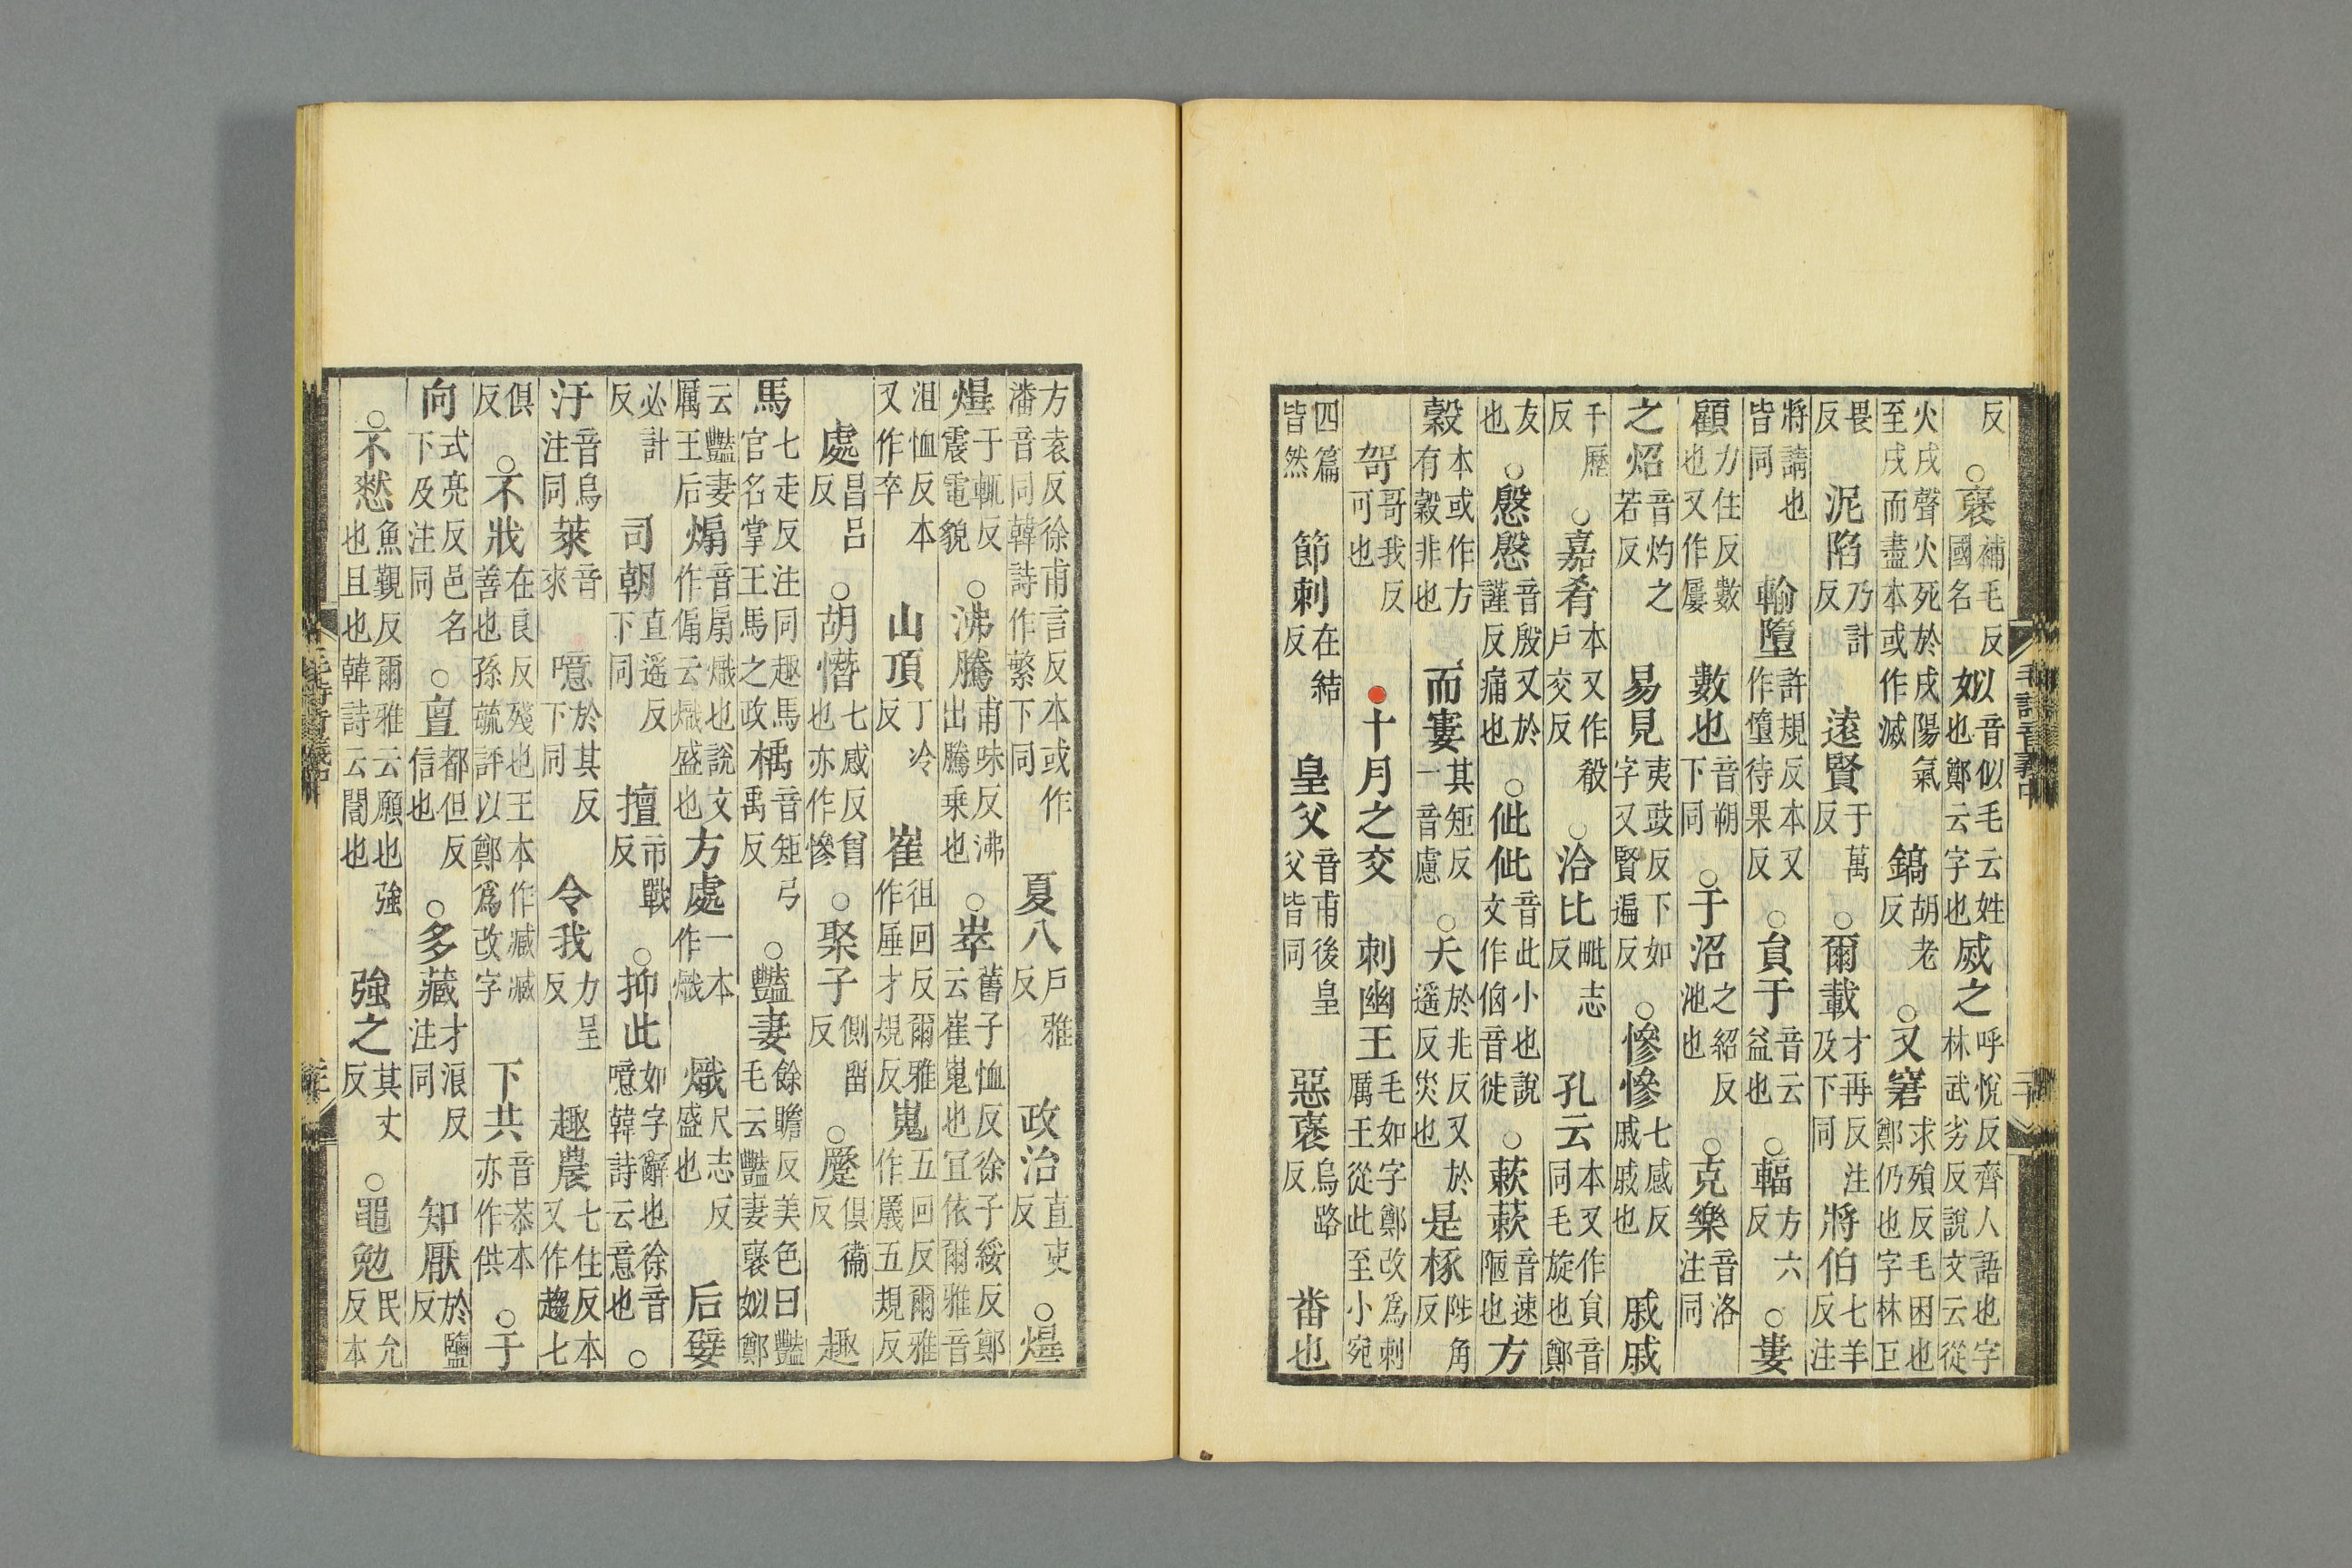 反○襃補毛反國名姒音似毛云姓也鄭云字也烕之呼悅反齊人語也字林武劣反說文云從
火戌聲火死於戌陽氣至戌而盡本或作滅鎬胡老反○又窘求殞反毛困也鄭仍也字林巨
畏反泥陷乃計反遠賢于萬反○爾載才再反注及下同將伯七羊反注
將請也皆同輸墮許規反本又作墯待果反○負于音云益也○輻方六反○婁
顧力住反數也又作屢數也音朔下同○于沼之紹反池也○克樂音洛注同
之炤音灼之若反易見夷豉反下如字又賢遍反○慘慘七感反戚戚也戚戚
千歷反○嘉肴本又作殽戶交反○洽比毗志反孔云本又作負音同毛旋也鄭
友也○慇慇音殷又於謹反痛也○佌佌音此小也說文作㑋音徙○蔌蔌音速陋也方
穀本或作方有穀非也而寠其矩反一音慮○夭於兆反又於遥反災也是椓陟角反
哿哥我反可也●十月之交刺幽王毛如字鄭改為刺厲王從此至小宛
四篇皆然節刺在結反皇父音甫後皇父皆同惡襃烏路反畨也
毛詩音義中
方袁反徐甫言反本或作潘音同韓詩作繁下同夏八戶雅反政治直吏反○爗
爗于輒反震電貌○沸騰甫味反沸出騰乗也○崒舊子恤反徐子綏反鄭云崔嵬也宜依爾雅音
沮恤反本又作卒山頂丁冷反崔徂回反爾雅作厜才規反嵬五回反爾雅作㕒五規反
處昌呂反○胡憯七感反曾也亦作慘○聚子側留反○蹷俱衞反趣
馬七走反注同趣馬官名掌王馬之政楀音矩弓禹反○豔妻餘贍反美色曰豔毛云豔妻襃姒鄭
云豔妻厲王后煽音扇熾也說文作偏云熾盛也方處一本作熾熾尺志反盛也后嬖
必計反司朝直遥反下同擅市戰反○抑此如字辭也徐音噫韓詩云意也○
汙音烏注同萊音來噫於其反下同令我力呈反趣農七住反本又作趨七
俱反○不戕在良反殘也王本作臧臧善也孫毓評以鄭爲改字下共音恭本亦作供○于
向式亮反邑名下及注同○亶都但反信也○多藏才浪反注同知厭於鹽反
○不憖魚覲反爾雅云願也強也且也韓詩云誾也強之其丈反○黽勉民允反本